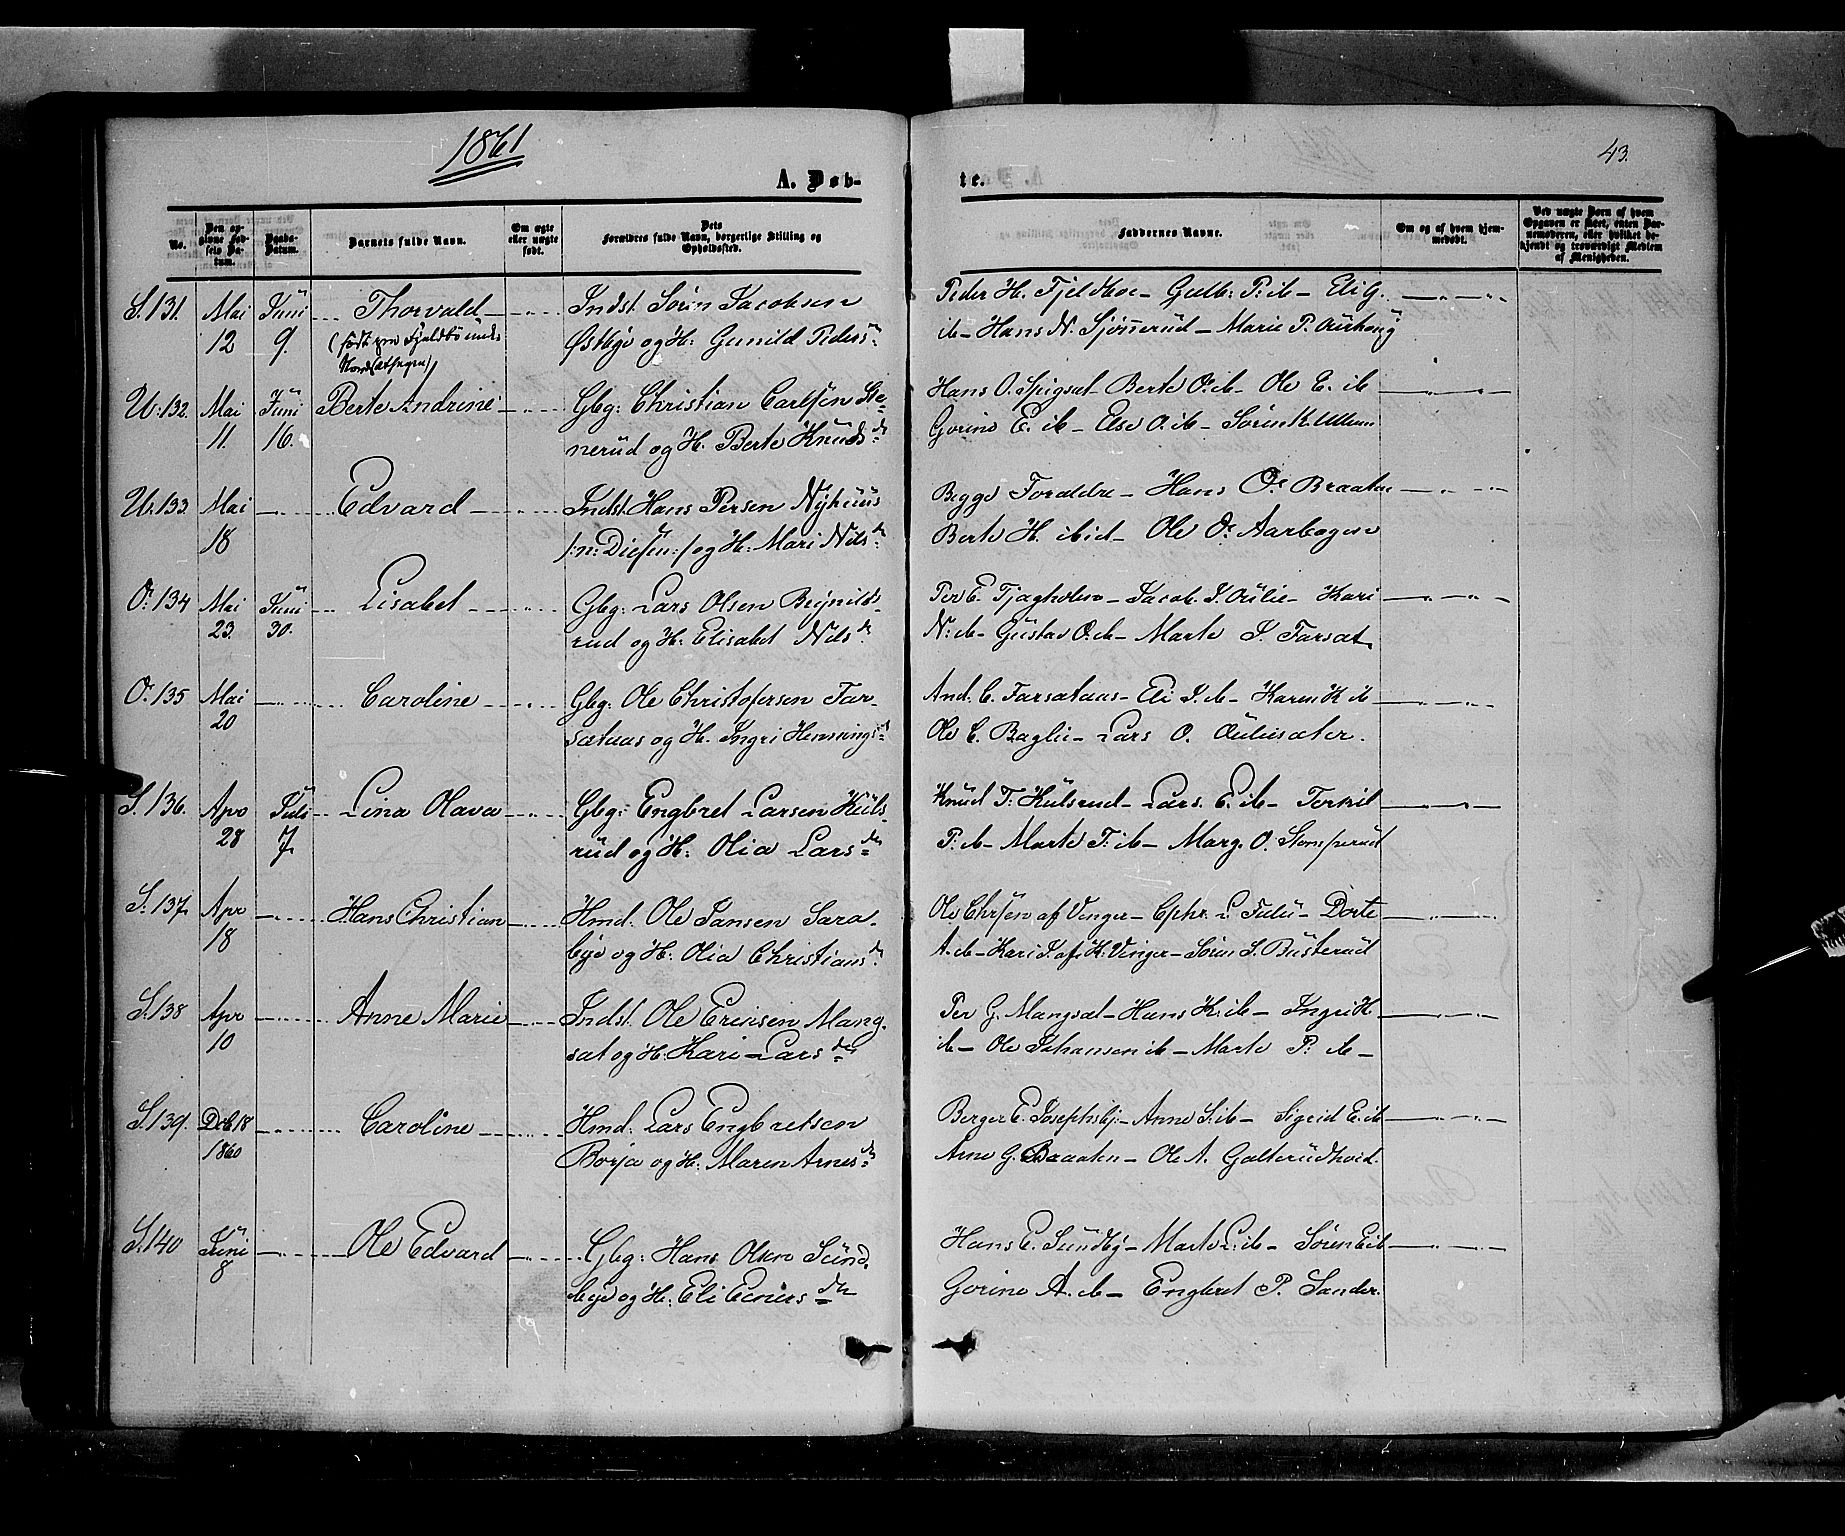 1861
43.
A. Døb-
te.
No.
Den op-
givne Fød-
sels Da-
tum.
Daabs-
Datum.
Barnets fulde Navn.
Om ægte
eller uægte
født.
Dets
Forældres fulde Navn, borgerlige Stilling og
Opholdssted.
Faddernes Navne.
Om og af hvem hjem-
medøbt.
Ved uægte Børn af hvem
Opgaven er skeet, enten Bar-
nemoderen, eller hvilket be-
kjendt og troværdigt Medlem
af Menigheden.
S. 131. Mai Juni Thorvald Indst. Sørn Jacobsen
12 9. (født paa Fjeldbø
Østbye og H. Gunild Peders
Peder H. Fjeldboe - Gulb: P: ib - Eli G.
ib - Hans N. Sjønnerud - Marie P. Aurhoug
U: 132. Mai Juni Berte Andrine Gbg: Christian Carlsen Ste-
11. 16. nerud og H. Berte Knudsdr
Hans O. Spigset - Berte O. ib - Ole E. ib
Gorine E. ib - Else O. ib - Søren K. Ullern
U: 133. Mai Edvard Indst: Hans Persen Nyhuus
18 /:n: Diesen:/ og H: Mari Nilsdr
Begge Foraldre - Hans O. Braaten
Berte H. ibid - Ole O. Aarbogen
O: 134 Mai Juni Lisabet Gbg: Lars Olsen Beynilds-
23. 30. rud og H: Elisabet Nilsdr
Per E. Tjagholen - Jacob J. Aulie - Kari
N: ib - Gustav O. ib - Marte J. Farsat
O: 135 Mai Caroline Gbg: Ole Christofersen Far-
20 sætaas og H. Ingri Hemmingsd
And. C. Farsætaas - Eli J. ib - Karen K ib
Ole C. Baglie - Lars O. Auliesæter.
S. 136. Apr Juli Lina Olava Gbg: Engbret Larsen Kuls-
28 7. rud og H: Olia Larsdr
Knud T: Kulsrud - Lars. E. ib - Terkil
P: ib - Marte T: ib - Marg. O. Stomperud
S. 137 Apr Hans Christian Hmd. Ole Jansen Sara-
18 bye og H: Olia Christiansdr
Ole Chrsen af Vinger - Cphr. L. Fulu - Dorte
A. ib - Kari J. af K. Vinger - Søren S. Busterud
S. 138 Apr Anne Marie Indst. Ole Ericsen Mang-
10 sat og H: Kari Larsdr
Per G. Mangsat - Hans K: ib - Ingri H
ib - Ole Johansen ib - Marte P: ib -
S. 139. Deb 18 Caroline Hmd: Lars Engbretsen
1860 Borja og H: Maren Arnesdr
Berger E. Josephsbj - Anne S. ib - Sigrid E. ib
Arne G. Braaten - Ole A. Galterudkvid.
S. 140 Juni Ole Edvard Gbg: Hans Olsen Sund-
8 bye og H: Eli Einersdr
Hans E. Sundby - Marte L: ib - Søren E ib
Gorine A. ib - Engbret P. Sander.